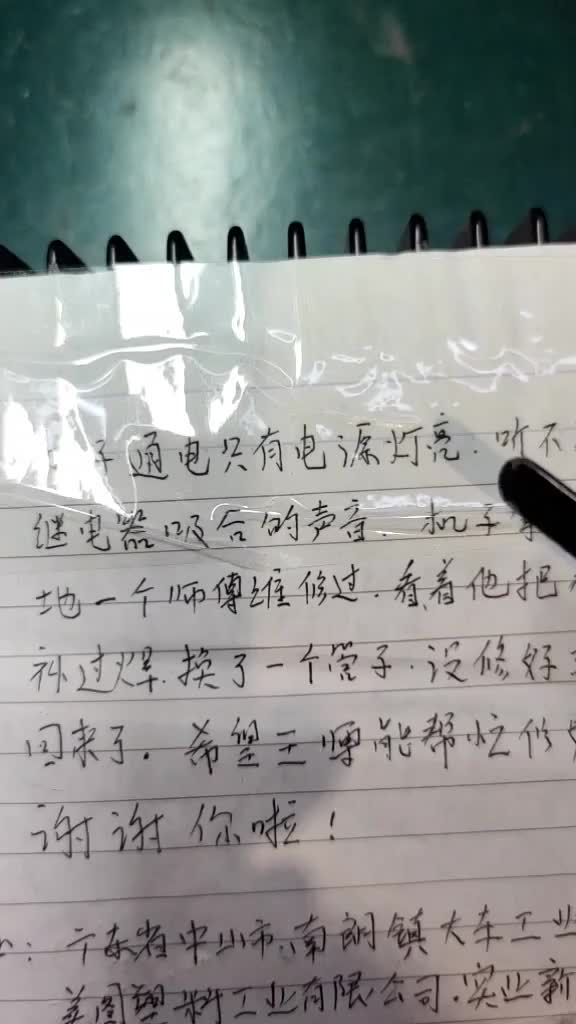 子通电只有电源灯亮.听不
继电器吸合的声音.机子
地一个师傅维修过.看着他把
补过焊.换了一个管子.没修好
回来了.希望王师能帮忙修
谢谢你啦!
广东省中山市.南朗镇大车工业
美图塑料工业有限公司.实业新